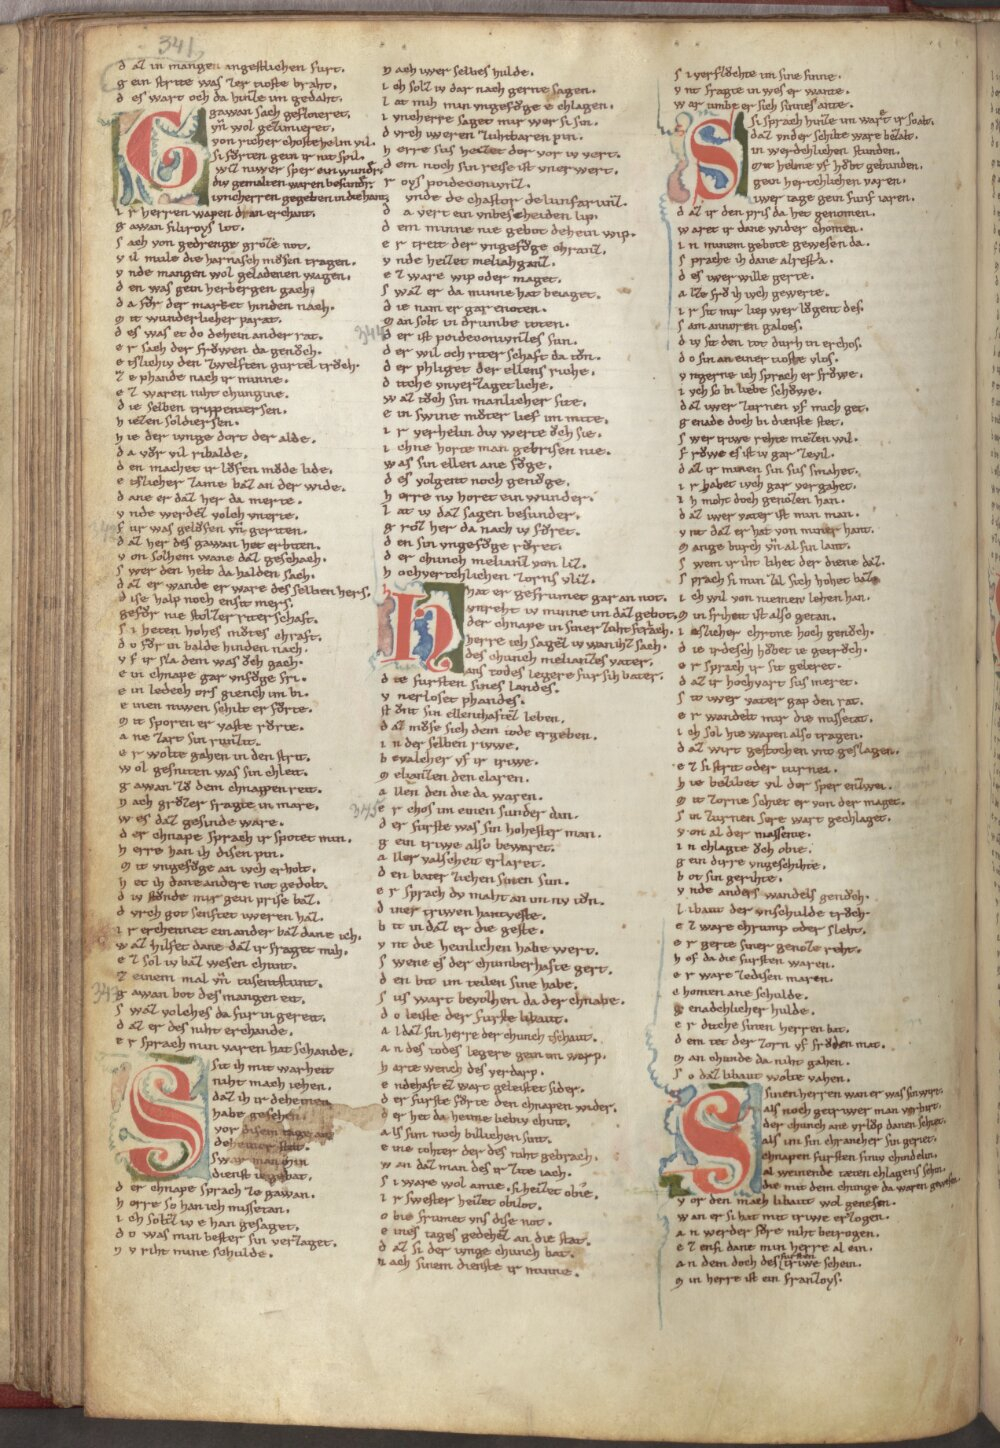 341
d az in mangen angestlichen furt.
g ein strite was zer tioste braht.
d es wart och da hinle im gedaht.
G gawan sach geflorieret.
vñ wol gezimieret.
von richer choste helm vil.
si fŏrten gein ir nit spil.
wiz niwer sper ein wunder.
div gemalten waren besunder.
iuncherren gegeben in die hant.
i r herren wapen dran erchant.
g awan filiroys lot.
s ach von gedrenge groze not.
v il mule die harnasch mŏsen tragen.
v nde mangen wol geladenen wagen.
d en was gein herbergen gach.
d a fŏr der market hinden nach.
m it wunderlicher parat.
d es was et do dehein ander rat.
e r sach der frŏwen da genŏch.
e tslichiv den zwelften gurtel trŏch.
z e phande nach ir minne.
e z waren niht chunginne.
d ie selben trippeniersen.
h iezen soldiersen.
h ie der iunge dort der alde.
d a vŏr vil ribalde.
d en machet ir lŏfen mŏde lide.
e tslicher zame baz an der wide.
d ane er daz her da merte.
v nde werdez volch vnerte.
f ur was gelŏfen vñ geriten.
d az her des gawan het erbiten.
v on solhem wane daz geschach.
s wer den helt da halden sach.
d az er wande er ware des selben hers.
d ise halp noch ensit mers.
gefŏr nie stolzer riterschaft.
s i heten hohes mŏtes chraft.
d o fŏr in balde hinden nach.
v f ir sla dem was ŏch gach.
e in chnape gar vnfŏge fri.
e in ledech ors giench im bi.
e inen niwen schilt er fŏrte.
m it sporen er vaste rŏrte.
a ne zart sin runzit.
e r wolte gahen in den strit.
w ol gesniten was sin chleit.
g awan zŏ dem chnappen reit.
n ach grŏzer fragte in mare.
w es daz gesinde ware.
d er chnape sprach ir spotet min.
h erre han ih disen pin.
m it vngefŏge an iuch erholt.
h et ih dane andere not gedolt.
d iv stŏnde mir gein prise baz.
d vrch got senftet iweren haz.
i r erchennet ein ander baz dane ich.
w az hilfet dane daz ir fraget mih.
e z sol iv baz wesen chunt.
z einem mal vñ tusentstunt.
343
g awan bot des mangen eit.
s waz volches da fur in gereit.
d az er des niht erchande.
e r sprach min varen hat schande.
S Sit ih mit warheit
niht mach iehen.
daz ih ir deheinen
habe gesehen.
vor disem tage an
deheiner stat.
swar man min
dienst ie gebat.
d er chnape sprach ze gawan.
h erre so han ich missetan.
i ch soltz iv e han gesaget.
d o was min bester sin verzaget.
n v riht mine schulde.
n ach iwer selbes hulde.
i ch solz iv dar nach gerne sagen.
l at mih min vngefŏge e chlagen.
i vncherre saget mir wer si sin.
d vrch iweren zuhtbaren pin.
h erre sus heizet der vor iv vert.
d em noch sin reise ist vnerwert.
r oys poidecomvnz.
v nde de chastor delunsarvnz.
d a vert ein vnbescheiden lip.
d em minne nie gebot dehein wip.
e r treit der vngefŏge chranz.
v nde heizet meliahganz.
e z ware wip oder maget.
s waz er da minne hat beiaget.
d ie nam er gar enoten.
m an solt in drumbe toten.
344
d er ist poidecomvnzes sun.
d er wil och riter schaft da tŏn.
d er phliget der ellens riche.
d icche vnverzagetliche.
w az tŏch sin manlicher site.
e in swine mŏter lief im mite.
i r verhelin div werte ŏch sie.
i chne horte man geprisen nie.
w as sin ellen ane fŏge.
d es volgent noch genŏge.
h erre nv horet ein wunder.
l at iv daz sagen besunder.
g roz her da nach iv fŏret.
d en sin vngefŏge rŏret.
d er chunch melianz von liz.
h ochvertchlichen zorns vliz.
H hat er gefrumet gar an not.
vnreht iv minne im daz gebot.
der chnape in siner zuht sprach.
herre ich sagez iv wan ihz sach.
des chunch melianzes vater.
ans todes legere fur sih bater.
d ie fursten sines landes.
v nerloset phandes.
st ŏnt sin ellenthaftez leben.
d az mŏse sich dem tode ergeben.
i n der selben riwe.
b evalcher vf ir triwe.
m elianzen den claren.
a llen den die da waren.
345
e r chos im einen sunder dan.
d er furste was sin hohester man.
g ein triwe also bewaret.
a ller valscheit erlaret.
d en bater ziehen sinen sun.
e r sprach dv maht an im nv tŏn.
d iner triwen hantveste.
b it in daz er die geste.
v nt die heinlichen habe wert.
s wene es der chumberhafte gert.
d en bit im teilen sine habe.
s us wart bevolhen da der chnabe.
d o leiste der furste libaut.
a l daz sin herre der chunch tschaut.
a n des todes legere gein im warp.
h arte wench des verdarp.
e ndehaft ez wart geleistet sider.
d er furste fŏrte den chnapen wider.
d er het da heime liebiv chint.
a ls sim noch billichen sint.
e ine tohter der des niht gebrach.
w an daz man des ir zite iach.
s i ware wol amie. si heizet obie.
i r swester heizet obilot.
o bie frumet vns dise not.
e ines tages gedehez an die stat.
d az si der iunge chunch bat.
n ach sinem dienste ir minne.
s i verflŏchte im sine sinne.
v nt fragte in wes er wante.
w ar umbe er sich sinnes ante.
S si sprach hinze im wart ir so alt.
daz vnder schilte ware bezalt.
in werdechlichen stunden.
mit helme vf hŏbt gebunden.
gein hertchlichen varen.
iwer tage gein funf iaren.
d az ir den pris da het genomen.
w aret ir dane wider chomen.
i n minem gebote gewesen da.
s prache ih dane alrest ia.
d es iwer wille gerte.
a lze frŏ ih iuch gewerte.
i r sit mir liep wer lŏgent des.
s am annoren galoes.
d iv sit den tot durh in erchos.
d o sin an einer tioste vlos.
v ngerne ich sprach er frŏwe.
i vch so bi liebe schŏwe.
d az iwer zurnen vf mich get.
g enade doch bi dienste stet.
s wer triwe rehte mezen wil.
f rŏwe es ist iv gar zevil.
d az ir minen sin sus smahet.
i r habet iuch gar vergahet.
i h moht doch genozen han.
d az iwer vater ist min man.
v nt daz er hat von miner hant.
m ange burch vñ al sin lant.
s wem ir iht lihet der diene daz.
s prach si min zil sich hohet baz.
i ch wil von niemen lehen han.
m in friheit ist also getan.
i eslicher chrone hoch genŏch.
d ie irdesch hŏbet ie getrŏch.
e r sprach ir sit geleret.
d az ir hochvart sus meret.
s it iwer vater gap den rat.
e r wandelt mir die missetat.
i ch sol hie wapen also tragen.
d az wirt gestochen vnt geslagen.
e z si strit oder turnei.
h ie belibet vil der sper enzwei.
m it zorne schiet er von der maget.
s in zurnen sere wart gechlaget.
v on al der massenie.
i n chlagte ŏch obie.
g ein dirre vngeschihte.
b ot sin gerihte.
v nde anders wandels genŏch.
l ibaut der vnschulde trŏch.
e z ware chrump oder sleht.
e r gerte siner genoze reht.
h of da die fursten waren.
e r ware ze disen maren.
c homen ane schulde.
g enadechlicher hulde.
e r dicche sinen herren bat.
d em tet der zorn vf frŏden mat.
m an chunde da niht gahen.
s o daz libaut wolte vahen.
S sinen herren wan er was sin wirt.
als noch getriwer man verbirt.
der chunch ane vrlŏp danen schiet.
als im sin chrancher sin geriet.
chnapen fursten siniv chindelin.
al weinende teten chlagens schin.
die mit dem chunge da waren gewesen.
v or den mach libaut wol genesen.
w an er si hat mit triwe erzogen.
a n werder fŏre niht betrogen.
e z ensi dane min herre al ein.
a n dem doch des fursten triwe schein.
m in herre ist ein franzoys.